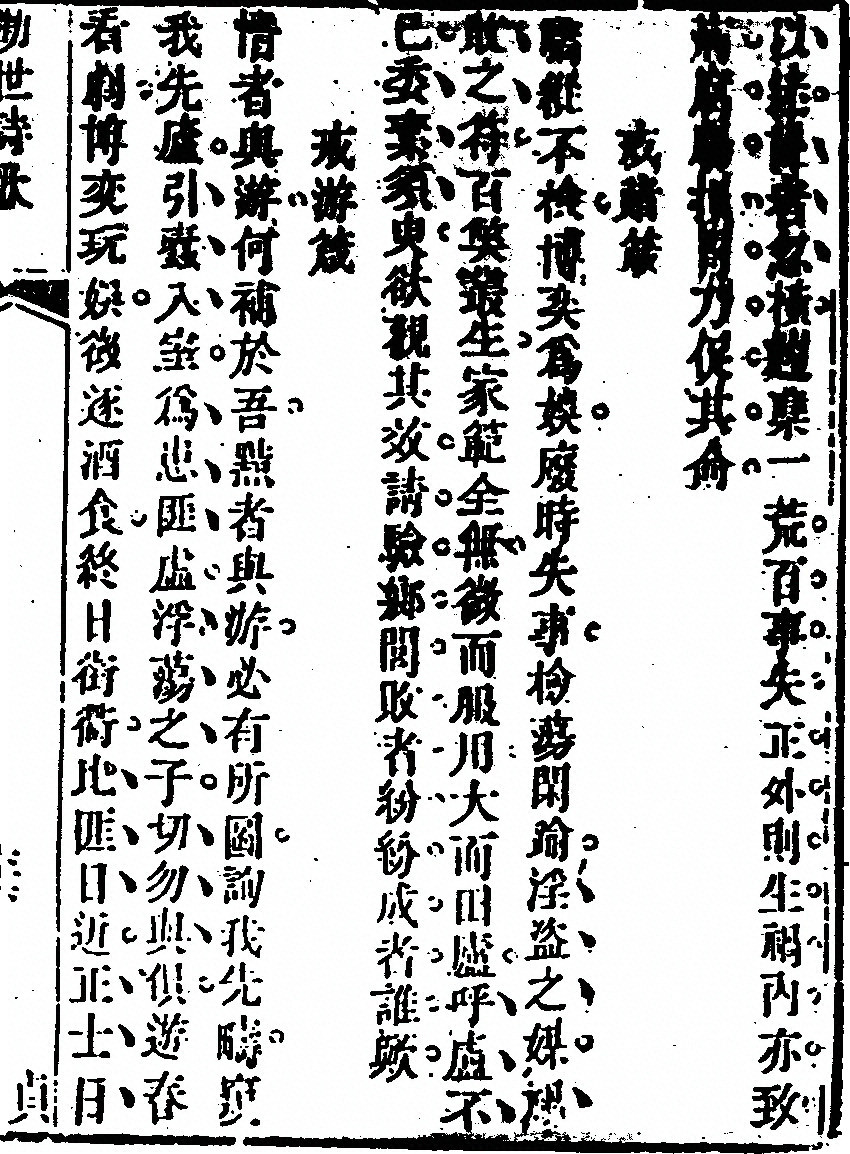 以往譁者忽橫趨棄一荒百事失正外則生禍內亦致
病腐腸損財乃促其命
戒賭箴
驕縱不檢博奕爲娛廢時失事檢蕩閑踰淫盜之媒
敢之符百獘叢生家範全無微而服用大而田廬呼盧不
已委棄須臾欲觀其效請驗鄉閭敗者紛紛成者誰歟
戒游箴
惰者與游何補於吾點者與游必有所圖詢我先疇
我先廬引蠹入室爲患匪虛浮蕩之子切勿與俱遊春
看劇博奕玩娛徵逐酒食終日街衢比匪日近正士日
勸世詩歌
貞